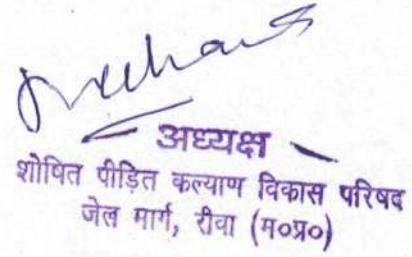 अध्यक्ष
शोषित पीड़ित कल्याण विकास परिषद
जेल मार्ग, रीवा (म०प्र०)